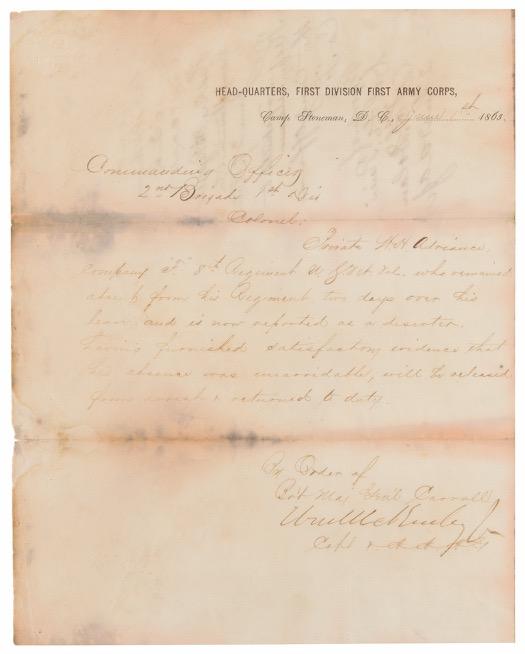 HEAD-QUARTERS, FIRST DIVISION FIRST ARMY CORPS,
Camp Stoneman, D. C., June 1st 1865.
Commanding Officer
2nd Brigade 1st Div
Colonel:
Private H H Adriance
Company F 8th Regiment U S Vet Vol. who remained
absent from his Regiment two days over his
leave and is now reported as a deserter.
Having furnished satisfactory evidence that
his absence was unavoidable, will be released
from arrest & returned to duty.
By Order of
Bvt Maj Gen'l Carroll
Wm McKinley Jr
Capt & A A A G